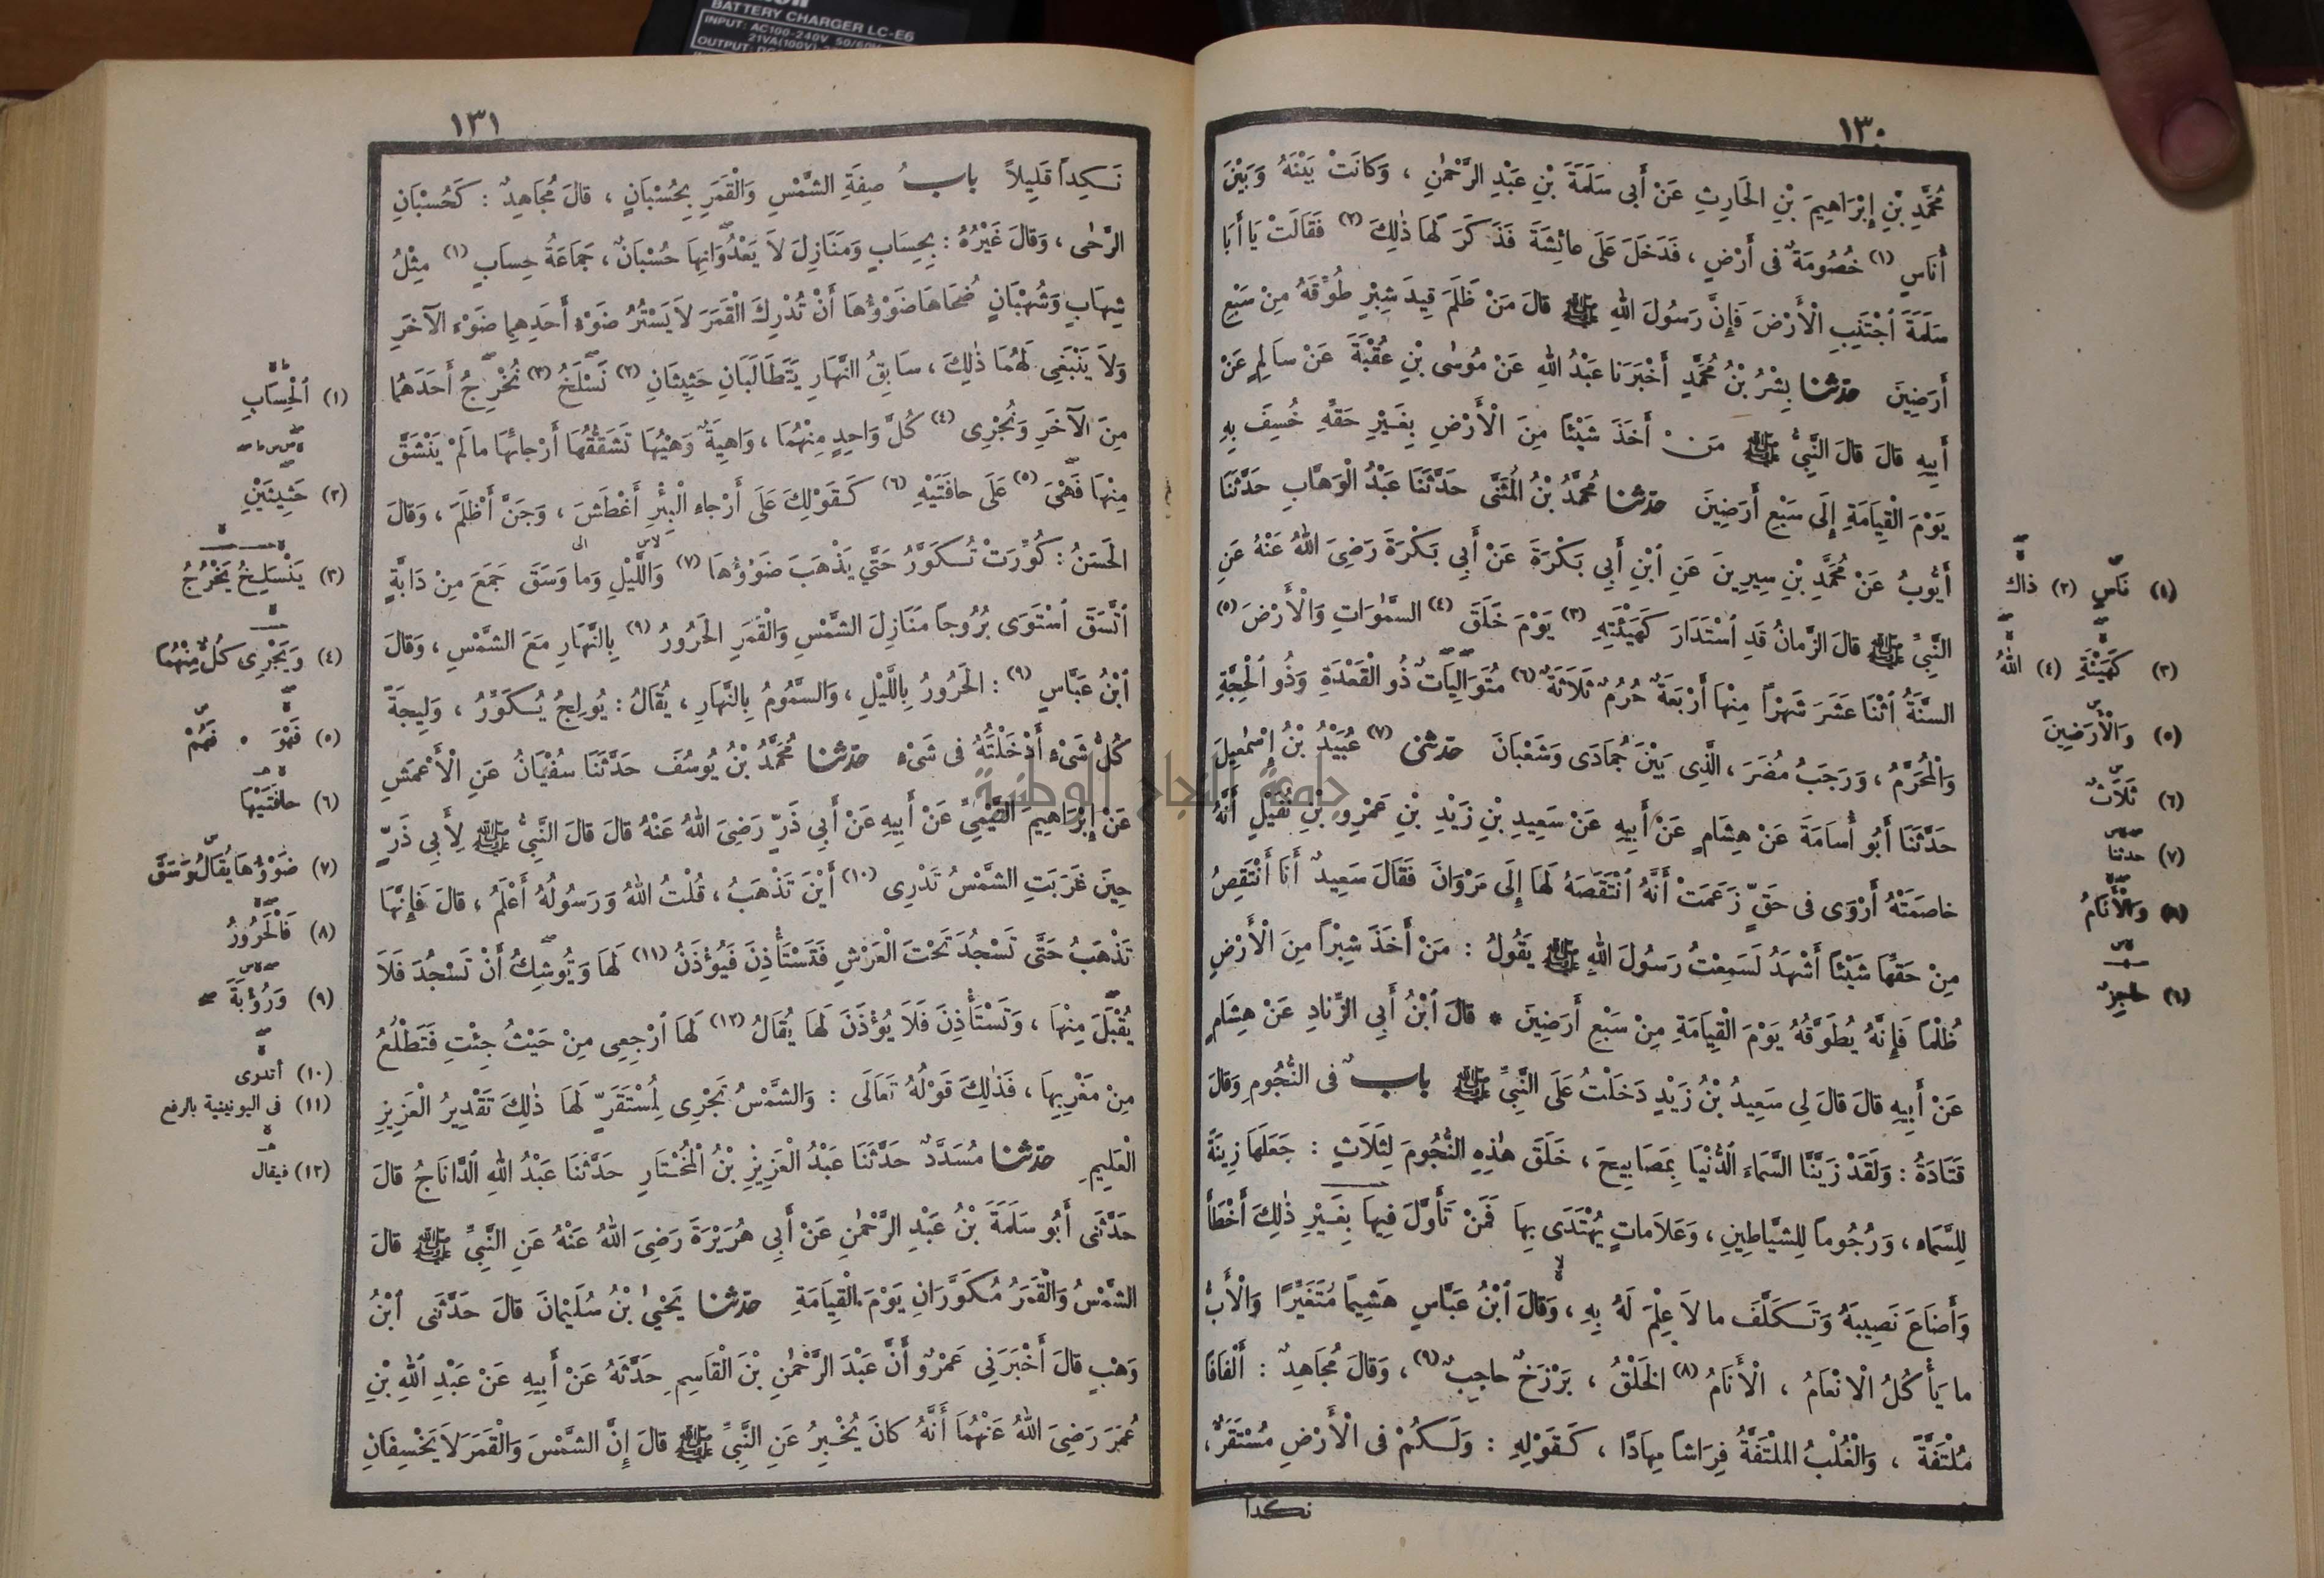 BATTERY CHARGER LC-E6
INPUT: AC100-240V 50/60
21VA(100V)-
OUTPUT: DC
١٣٠
مُحَمَّدِ بْنِ إِبْرَاهِيمَ بْنِ الحَارِثِ عَنْ أَبِى سَلَمَةَ بْنِ عَبْدِ الرَّحْمٰنِ ، وَكانَتْ بَيْنَهُ وَبَيْنَ
أُنَاسٍ (١) خُصُومَةٌ فى أَرْضٍ ، فَدَخَلَ عَلَى عائِشَةَ فَذَكَرَ لَهَا ذٰلِكَ (٢) فَقَالَتْ يَا أَبَا
سَلَمَةَ ٱجْتَنِبِ الْأَرْضَ فَإِنَّ رَسُولَ اللهِ ﷺ قالَ مَنْ ظَلَمَ قِيدَ شِبْرٍ طُوِّقَهُ مِنْ سَبْعِ
أَرَضِينَ حدّثنا بِشْرُ بْنُ مُحَمَّدٍ أَخْبَرَنَا عَبْدُ اللهِ عَنْ مُوسٰى بْنِ عُقْبَةَ عَنْ سالِمٍ عَنْ
أَبِيهِ قالَ قالَ النَّبِيُّ ﷺ مَنْ أَخَذَ شَيْئًا مِنَ الْأَرْضِ بِغَيْرِ حَقِّهِ خُسِفَ بِهِ
يَوْمَ الْقِيَامَةِ إِلَى سَبْعِ أَرَضِينَ حدّثنا مُحَمَّدُ بْنُ المُثَنَّى حَدَّثَنَا عَبْدُ الْوَهَّابِ حَدَّثَنَا
أَيُّوبُ عَنْ مُحَمَّدِ بْنِ سِيرِينَ عَنِ ٱبْنِ أَبِي بَكْرَةَ عَنْ أَبِي بَكْرَةَ رَضِىَ اللهُ عَنْهُ عَنِ
النَّبِيِّ ﷺ قالَ الزَّمانُ قَدِ ٱسْتَدَارَ كَهَيْئَتِهِ (٣) يَوْمَ خَلَقَ (٤) السَّمٰوَاتِ وَالْأَرْضَ (٥)
السَّنَةُ ٱثْنَا عَشَرَ شَهْرًا مِنْهَا أَرْبَعَةٌ حُرُمٌ ثَلَاثَةٌ (٦) مُتَوَالِيَاتٌ ذُو الْقَعْدَةِ وَذُو الْحِجَّةِ
وَالْمُحَرَّمُ ، وَرَجَبُ مُضَرَ ، الَّذِى بَيْنَ جُمَادَى وَشَعْبَانَ حدّثنى (٧) عُبَيْدُ بْنُ إِسْمٰعِيلَ
حَدَّثَنَا أَبُو أُسامَةَ عَنْ هِشَامٍ عَنْ أَبِيهِ عَنْ سَعِيدِ بْنِ زَيْدِ بْنِ عَمْرِو بْنِ نُفَيْلٍ أَنَّهُ
خاصَمَتْهُ أَرْوَى فى حَقٍّ زَعَمَتْ أَنَّهُ ٱنْتَقَصَهُ لَهَا إِلَى مَرْوَانَ فَقَالَ سَعِيدٌ أَنَا أَنْتَقِصُ
مِنْ حَقِّهَا شَيْئًا أَشْهَدُ لَسَمِعْتُ رَسُولَ اللهِ ﷺ يَقُولُ : مَنْ أَخَذَ شِبْرًا مِنَ الْأَرْضِ
ظُلْمًا فَإِنَّهُ يُطَوَّقُهُ يَوْمَ الْقِيَامَةِ مِنْ سَبْعِ أَرَضِينَ * قالَ ٱبْنُ أَبِي الزِّنادِ عَنْ هِشَامٍ
عَنْ أَبِيهِ قالَ قالَ لِي سَعِيدُ بْنُ زَيْدٍ دَخَلْتُ عَلَى النَّبِيِّ ﷺ بابٌ فى النُّجُومِ وَقالَ
قَتَادَةُ : وَلَقَدْ زَيَّنَّا السَّمَاءَ الدُّنْيَا بِمَصَابِيحَ ، خَلَقَ هٰذِهِ النُّجُومَ لِثَلَاثٍ : جَعَلَهَا زِينَةً
لِلسَّمَاءِ ، وَرُجُومًا لِلشَّيَاطِينِ ، وَعَلَامَاتٍ يُهْتَدَى بِهَا فَمَنْ تَأَوَّلَ فِيهَا بِغَيْرِ ذٰلِكَ أَخْطَأَ
وَأَضَاعَ نَصِيبَهُ وَتَكَلَّفَ ما لَا عِلْمَ لَهُ بِهِ ، وَقالَ ٱبْنُ عَبَّاسٍ هَشِيمًا مُتَغَيِّرًا وَالْأَبُّ
ما يَأْكُلُ الْانْعَامُ ، الْأَنَامُ (٨) الخَلْقُ ، بَرْزَخٌ حاجِبٌ (٩) ، وَقالَ مُجَاهِدٌ : أَلْفَافًا
مُلْتَفَّةً ، وَالْغُلْبُ المُلْتَفَّةُ فِرَاشًا مِهَادًا ، كَقَوْلِهِ : وَلَكُمْ فى الْأَرْضِ مُسْتَقَرٌّ ،
نكدا
(١) نَاسٍ (٢) ذاك
(٣) كَهَيْئَةِ (٤) اللهُ
(٥) وَالْأَرَضِينَ
(٦) ثَلَاثٌ
(٧) حدثنا
(٨) وَالْأَنَامُ
(٩) حاجِزٌ
١٣١
نَكِدًا قَلِيلاً بابُ صِفَةِ الشَّمْسِ وَالْقَمَرِ بِحُسْبَانٍ ، قالَ مُجَاهِدٌ : كَحُسْبَانِ
الرَّحٰى ، وَقالَ غَيْرُهُ : بِحِسَابٍ وَمَنَازِلَ لاَ يَعْدُوَانِهَا حُسْبَانٌ ، جَمَاعَةُ حِسَابٍ (١) مِثْلُ
شِهَابٍ وَشُهْبَانٍ ضُحَاهَا ضَوْؤُهَا أَنْ تُدْرِكَ الْقَمَرَ لاَ يَسْتُرُ ضَوْءُ أَحَدِهِما ضَوْءَ الآخَرِ
وَلاَ يَنْبَغِى لَهُمَا ذٰلِكَ ، سَابِقُ النَّهَارِ يَتَطَالَبَانِ حَثِيثَانِ (٢) نَسْلَخُ (٣) نُخْرِجُ أَحَدَهُمَا
مِنَ الآخَرِ وَنُجْرِى (٤) كُلَّ وَاحِدٍ مِنْهُمَا ، وَاهِيَةٌ وَهْيُهَا تَشَقُّقُهَا أَرْجائِهَا ما لَمْ يَنْشَقَّ
مِنْهَا فَهْىَ (٥) عَلَى حافَتَيْهِ (٦) كَقَوْلِكَ عَلَى أَرْجاءِ الْبِئْرِ أَغْطَشَ ، وَجَنَّ أَظْلَمَ ، وَقالَ
الحَسَنُ : كُوِّرَتْ تُكَوَّرُ حَتَّى يَذْهَبَ ضَوْؤُهَا (٧) وَاللَّيْلِ وَما وَسَقَ جَمَعَ مِنْ دَابَّةٍ
ٱتَّسَقَ ٱسْتَوَى بُرُوجًا مَنَازِلَ الشَّمْسِ وَالْقَمَرِ الحَرُورُ (٩) بِالنَّهَارِ مَعَ الشَّمْسِ ، وَقالَ
ٱبْنُ عَبَّاسٍ (٩) : الحَرُورُ بِاللَّيْلِ ، وَالسَّمُومُ بِالنَّهَارِ ، يُقَالُ : يُولِجُ يُكَوِّرُ ، وَلِيجَةً
كُلُّ شَىْءٍ أَدْخَلْتَهُ فى شَىْءٍ حدّثنا مُحَمَّدُ بْنُ يُوسُفَ حَدَّثَنَا سفْيَانُ عَنِ الْأَعْمَشِ
عَنْ إِبْرَاهِيمَ التَّيْمِيِّ عَنْ أَبِيهِ عَنْ أَبِي ذَرٍّ رَضِىَ اللهُ عَنْهُ قالَ قالَ النَّبِيُّ ﷺ لِأَبِي ذَرٍّ
حِينَ غَرَبَتِ الشَّمْسُ تَدْرِى (١٠) أَيْنَ تَذْهَبُ ، قُلْتُ اللهُ وَرَسُولُهُ أَعْلَمُ ، قالَ فَإِنَّهَا
تَذْهَبُ حَتَّى تَسْجُدَ تَحْتَ الْعَرْشِ فَتَسْتَأْذِنَ فَيُؤْذَنُ (١١) لَهَا وَيُوشِكُ أَنْ تَسْجُدَ فَلَا
يُقْبَلَ مِنْهَا ، وَتَسْتَأْذِنَ فَلَا يُؤْذَنَ لَهَا يُقَالُ (١٢) لَهَا ٱرْجِعِى مِنْ حَيْثُ جِئْتِ فَتَطْلُعُ
مِنْ مَغْرِبِهَا ، فَذٰلِكَ قَوْلُهُ تَعَالَى : وَالشَّمْسُ تَجْرِى لِمُسْتَقَرٍّ لَهَا ذٰلِكَ تَقْدِيرُ الْعَزِيزِ
الْعَلِيمِ حدّثنا مُسَدَّدٌ حَدَّثَنَا عَبْدُ الْعَزِيزِ بْنُ الْمُخْتَارِ حَدَّثَنَا عَبْدُ اللهِ الدَّانَاجُ قالَ
حَدَّثَنِى أَبُو سَلَمَةَ بْنُ عَبْدِ الرَّحْمٰنِ عَنْ أَبِي هُرَيْرَةَ رَضِىَ اللهُ عَنْهُ عَنِ النَّبِيِّ ﷺ قالَ
الشَّمْسُ وَالْقَمَرُ مُكَوَّرَانِ يَوْمَ الْقِيَامَةِ حدّثنا يَحْيٰى بْنُ سُلَيْمانَ قالَ حَدَّثَنِى ٱبْنُ
وَهْبٍ قالَ أَخْبَرَنِي عَمْرٌو أَنَّ عَبْدَ الرَّحْمٰنِ بْنَ الْقَاسِمِ حَدَّثَهُ عَنْ أَبِيهِ عَنْ عَبْدِ اللهِ بْنِ
عُمَرَ رَضِىَ اللهُ عَنْهُمَا أَنَّهُ كانَ يُخْبِرُ عَنِ النَّبِيِّ ﷺ قالَ إِنَّ الشَّمْسَ وَالْقَمَرَ لاَ يَخْسِفَانِ
(١) ٱلْحِسَابِ
(٢) حَثِيثَيْنِ
(٣) يَنْسَلِخُ يَخْرُجُ
(٤) وَيَجْرِى كُلٌّ مِنْهُمَا
(٥) فَهْوَ . فَهُمْ
(٦) حافَتَيْهَا
(٧) ضَوْؤُهَا يُقَالُ وَسَقَ
(٨) فَالْحَرُورُ
(٩) وَرُؤْبَةُ
(١٠) أتدرى
(١١) فى اليونينية بالرفع
(١٢) فيقال
جامعة النجاح الوطنية